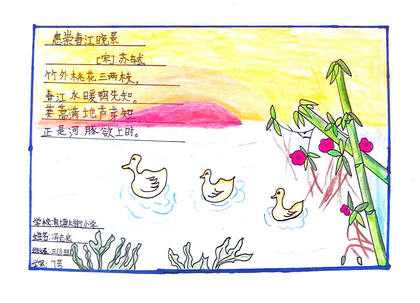 惠崇春江晚景
[宋]苏轼
竹外桃花三两枝，
春江水暖鸭先知。
蒌蒿满地芦芽短
正是河豚欲上时。
学校: 小学
姓名:
班级: 三
学号: 7号